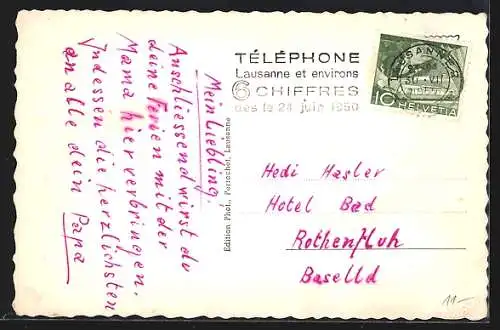 Mein Liebling!
Anschliessend wirst du
deine Ferien mit der
Mama hier verbringen.
Indessen die herzlichsten
an alle dein Papa
Edition Phot. Perrochet, Lausanne
TÉLÉPHONE
Lausanne et environs
6 CHIFFRES
dès le 24 juin 1950
LAUSANNE
10 HELVETIA
Hedi Hasler
Hotel Bad
Rothenfluh
Baselld
11.-